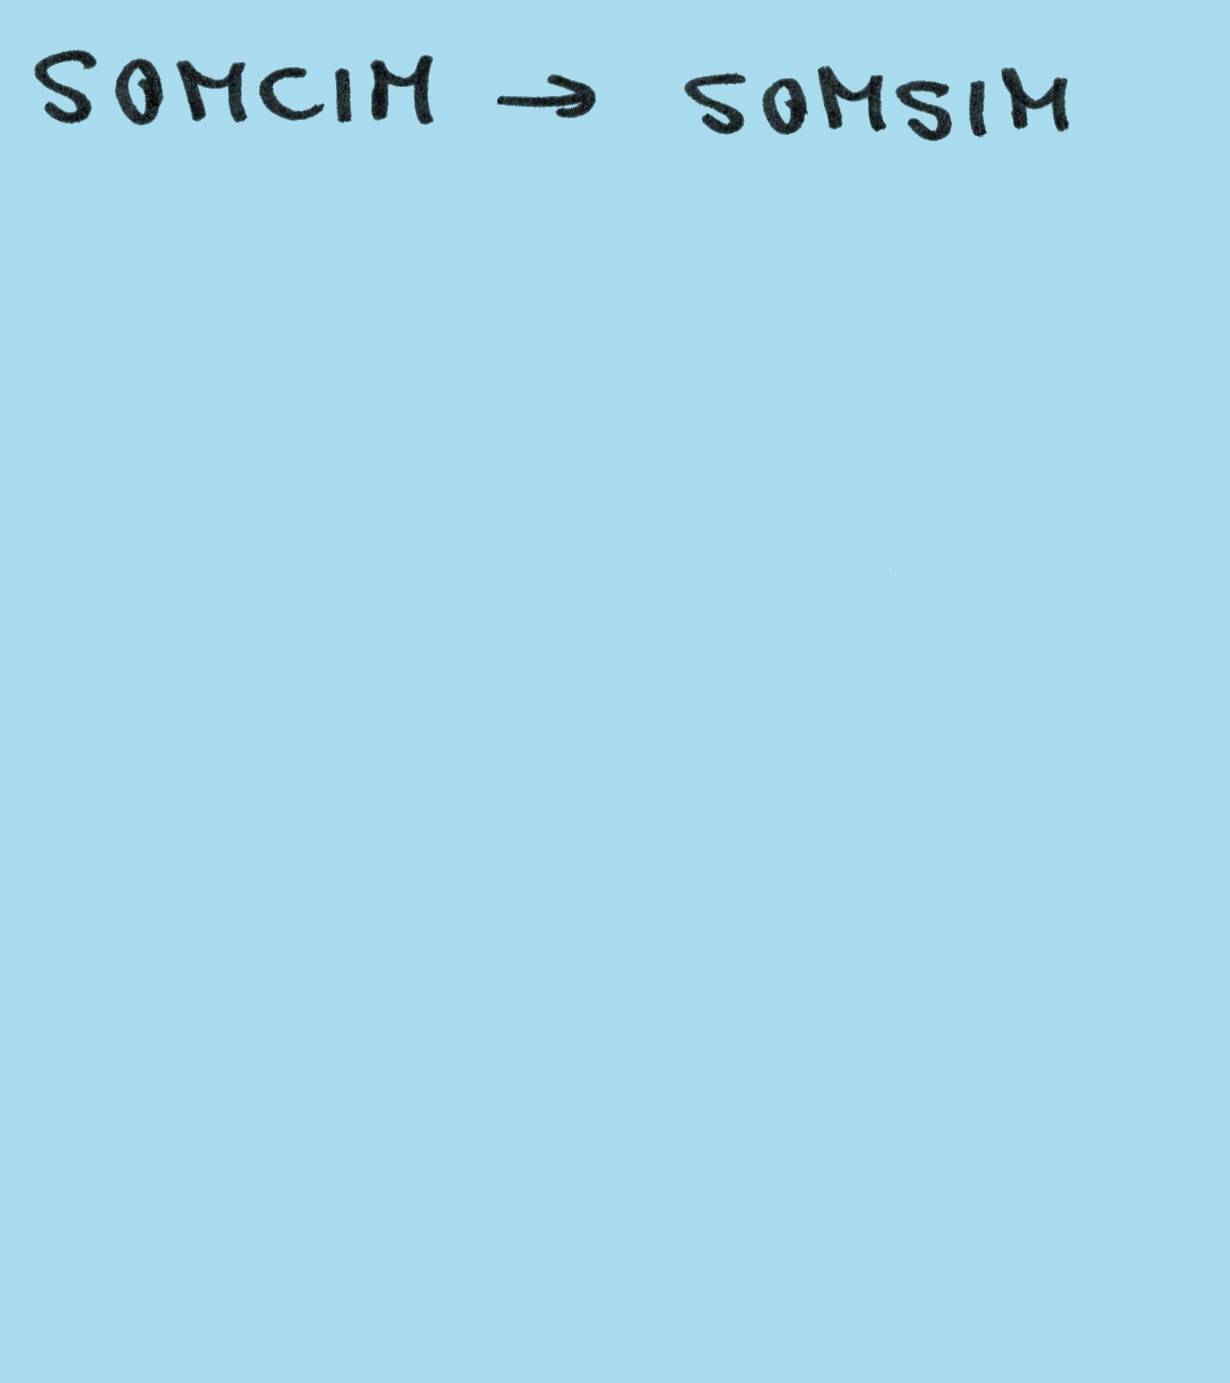 SOMCIM → SOMSIM